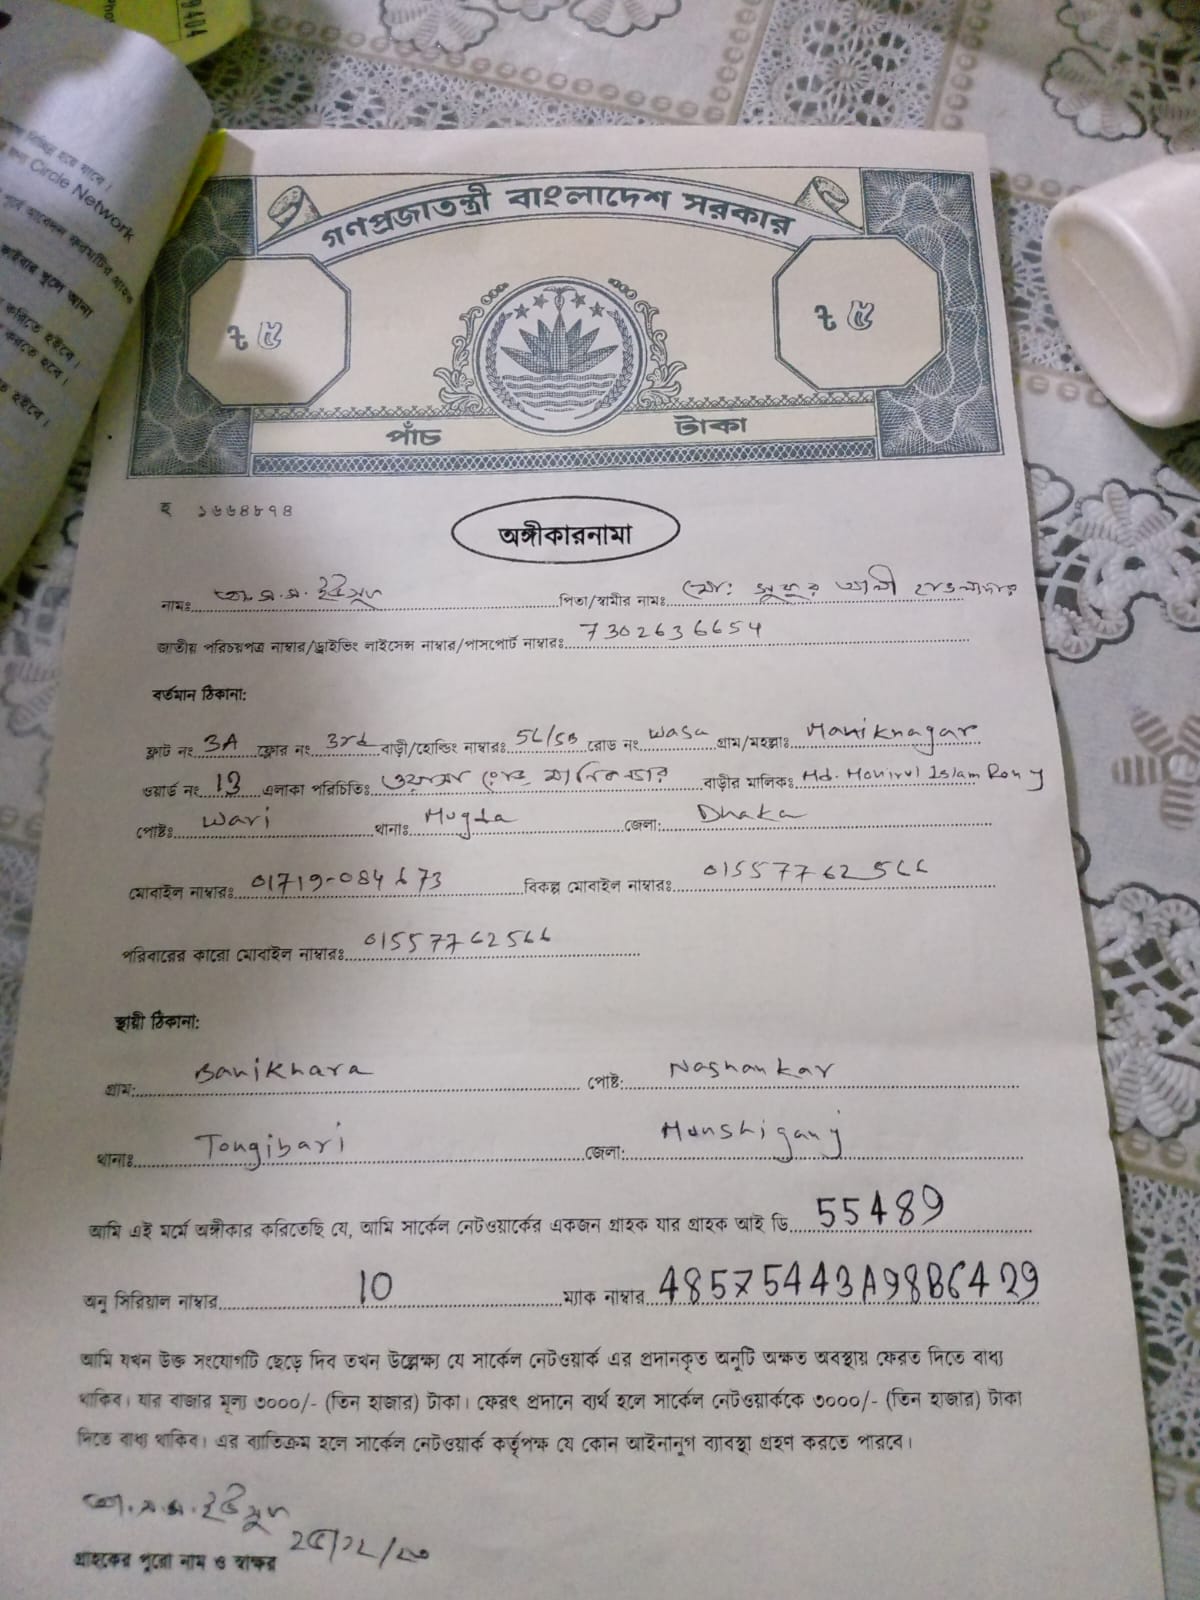 9404
Circle Network
গণপ্রজাতন্ত্রী বাংলাদেশ সরকার
৳ ৫ ৳ ৫
পাঁচ টাকা
হ ১৬৬৪৮৭৪
অঙ্গীকারনামা
নামঃ এ.এস.এম. ইউসুফ পিতা/স্বামীর নামঃ মো: আলী হাওলাদার
জাতীয় পরিচয়পত্র নাম্বার/ড্রাইভিং লাইসেন্স নাম্বার/পাসপোর্ট নাম্বারঃ 7302636654
বর্তমান ঠিকানা:
ফ্লাট নং 3A ফ্লোর নং 3rd বাড়ী/হোল্ডিং নাম্বারঃ রোড নং Wasa গ্রাম/মহল্লাঃ Maniknagar
ওয়ার্ড নং 13 এলাকা পরিচিতিঃ ওয়াসা রোড মানিকনগর বাড়ীর মালিকঃ Md. Monirul Islam Rony
পোষ্টঃ Wari থানাঃ Mugda জেলা: Dhaka
মোবাইল নাম্বারঃ 01719-084673 বিকল্প মোবাইল নাম্বারঃ 01557762566
পরিবারের কারো মোবাইল নাম্বারঃ 01557762566
স্থায়ী ঠিকানা:
গ্রাম: Banikhara পোষ্ট: Nashankar
থানাঃ Tongibari জেলা: Munshiganj
আমি এই মর্মে অঙ্গীকার করিতেছি যে, আমি সার্কেল নেটওয়ার্কের একজন গ্রাহক যার গ্রাহক আই ডি 55489
অনু সিরিয়াল নাম্বার 10 ম্যাক নাম্বার 48575443A98B6429
আমি যখন উক্ত সংযোগটি ছেড়ে দিব তখন উল্লেক্ষ্য যে সার্কেল নেটওয়ার্ক এর প্রদানকৃত অনুটি অক্ষত অবস্থায় ফেরত দিতে বাধ্য
থাকিব। যার বাজার মূল্য ৩০০০/- (তিন হাজার) টাকা। ফেরৎ প্রদানে ব্যর্থ হলে সার্কেল নেটওয়ার্ককে ৩০০০/- (তিন হাজার) টাকা
দিতে বাধ্য থাকিব। এর ব্যতিক্রম হলে সার্কেল নেটওয়ার্ক কর্তৃপক্ষ যে কোন আইনানুগ ব্যাবস্থা গ্রহণ করতে পারবে।
এ.এস.এম. ইউসুফ
গ্রাহকের পুরো নাম ও স্বাক্ষর